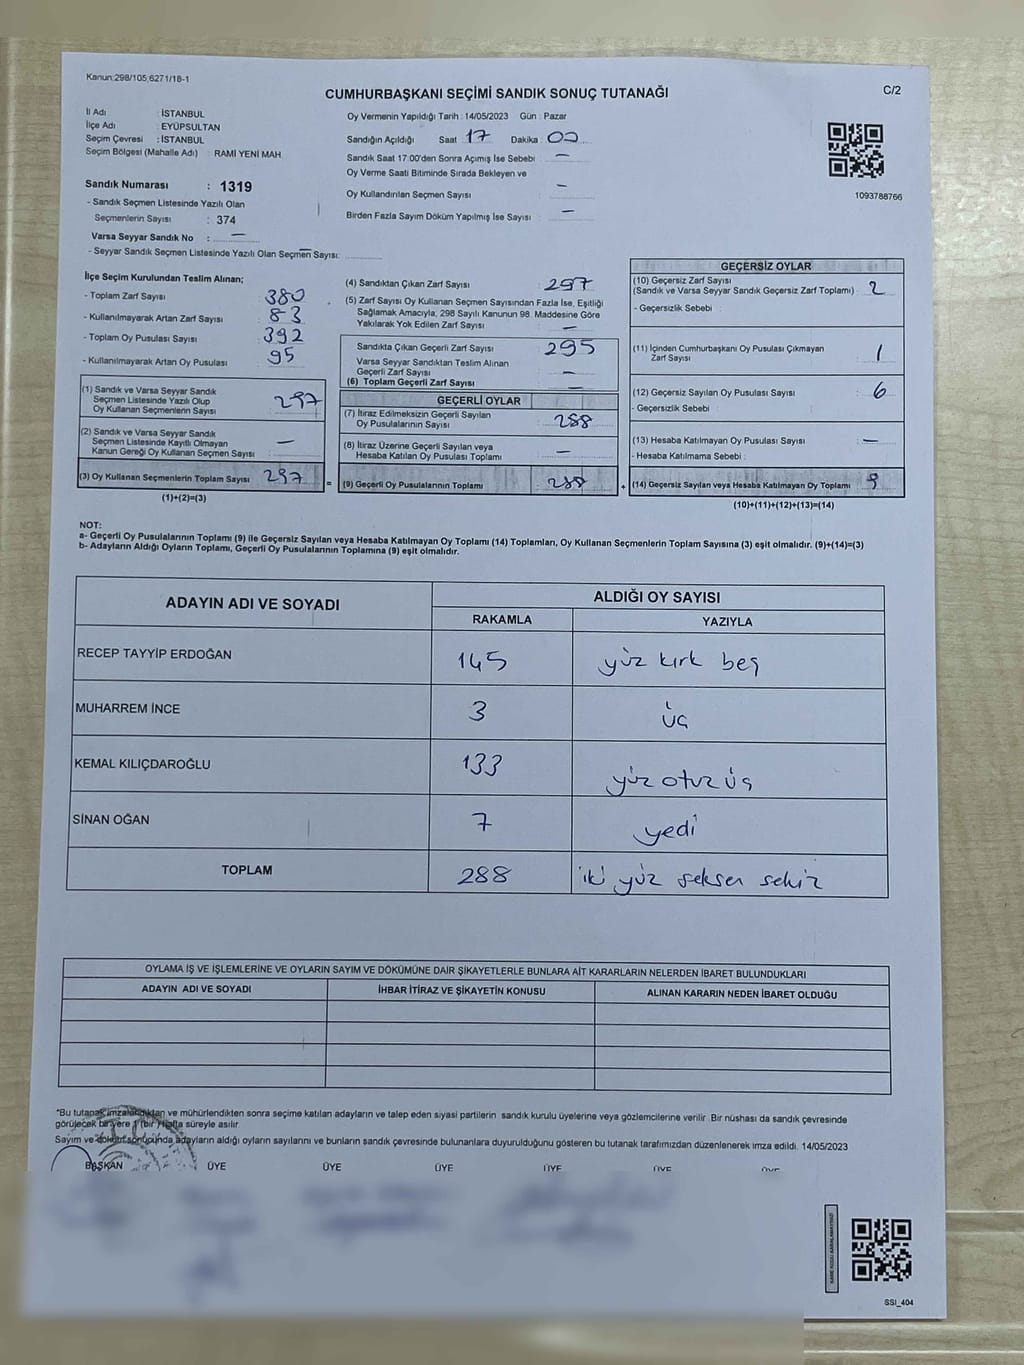 Kanun:298/105,6271/18-1
CUMHURBAŞKANI SEÇİMİ SANDIK SONUÇ TUTANAĞI
C/2
İl Adı : İSTANBUL
İlçe Adı : EYÜPSULTAN
Seçim Çevresi : İSTANBUL
Seçim Bölgesi (Mahalle Adı) : RAMİ YENİ MAH.
Oy Vermenin Yapıldığı Tarih : 14/05/2023 Gün : Pazar
Sandığın Açıldığı Saat : 17 Dakika : 00
Sandık Saat 17:00'den Sonra Açımış İse Sebebi : —
Oy Verme Saati Bitiminde Sırada Bekleyen ve
Oy Kullandırılan Seçmen Sayısı : —
Birden Fazla Sayım Döküm Yapılmış İse Sayısı : —
1093788766
Sandık Numarası : 1319
- Sandık Seçmen Listesinde Yazılı Olan
Seçmenlerin Sayısı : 374
Varsa Seyyar Sandık No : —
- Seyyar Sandık Seçmen Listesinde Yazılı Olan Seçmen Sayısı: —
İlçe Seçim Kurulundan Teslim Alınan;
- Toplam Zarf Sayısı : 380
- Kullanılmayarak Artan Zarf Sayısı : 83
- Toplam Oy Pusulası Sayısı : 392
- Kullanılmayarak Artan Oy Pusulası : 95
(1) Sandık ve Varsa Seyyar Sandık
Seçmen Listesinde Yazılı Olup
Oy Kullanan Seçmenlerin Sayısı : 297
(2) Sandık ve Varsa Seyyar Sandık
Seçmen Listesinde Kayıtlı Olmayan
Kanun Gereği Oy Kullanan Seçmen Sayısı : —
(3) Oy Kullanan Seçmenlerin Toplam Sayısı : 297
(1)+(2)=(3)
(4) Sandıktan Çıkan Zarf Sayısı : 297
(5) Zarf Sayısı Oy Kullanan Seçmen Sayısından Fazla İse, Eşitliği
Sağlamak Amacıyla, 298 Sayılı Kanunun 98. Maddesine Göre
Yakılarak Yok Edilen Zarf Sayısı : —
Sandıkta Çıkan Geçerli Zarf Sayısı : 295
Varsa Seyyar Sandıktan Teslim Alınan
Geçerli Zarf Sayısı : —
(6) Toplam Geçerli Zarf Sayısı : —
GEÇERLİ OYLAR
(7) İtiraz Edilmeksizin Geçerli Sayılan
Oy Pusulalarının Sayısı : 288
(8) İtiraz Üzerine Geçerli Sayılan veya
Hesaba Katılan Oy Pusulası Toplamı : —
(9) Geçerli Oy Pusulalarının Toplamı : 288
GEÇERSİZ OYLAR
(10) Geçersiz Zarf Sayısı
(Sandık ve Varsa Seyyar Sandık Geçersiz Zarf Toplamı) : 2
- Geçersizlik Sebebi :
(11) İçinden Cumhurbaşkanı Oy Pusulası Çıkmayan
Zarf Sayısı : 1
(12) Geçersiz Sayılan Oy Pusulası Sayısı : 6
- Geçersizlik Sebebi :
(13) Hesaba Katılmayan Oy Pusulası Sayısı : —
- Hesaba Katılmama Sebebi :
(14) Geçersiz Sayılan veya Hesaba Katılmayan Oy Toplamı : 9
(10)+(11)+(12)+(13)=(14)
NOT:
a- Geçerli Oy Pusulalarının Toplamı (9) ile Geçersiz Sayılan veya Hesaba Katılmayan Oy Toplamı (14) Toplamları, Oy Kullanan Seçmenlerin Toplam Sayısına (3) eşit olmalıdır. (9)+(14)=(3)
b- Adayların Aldığı Oyların Toplamı, Geçerli Oy Pusulalarının Toplamına (9) eşit olmalıdır.
ADAYIN ADI VE SOYADI
ALDIĞI OY SAYISI
RAKAMLA YAZIYLA
RECEP TAYYİP ERDOĞAN 145 yüz kırk beş
MUHARREM İNCE 3 üç
KEMAL KILIÇDAROĞLU 133 yüz otuz üç
SİNAN OĞAN 7 yedi
TOPLAM 288 iki yüz seksen sekiz
OYLAMA İŞ VE İŞLEMLERİNE VE OYLARIN SAYIM VE DÖKÜMÜNE DAİR ŞİKAYETLERLE BUNLARA AİT KARARLARIN NELERDEN İBARET BULUNDUKLARI
ADAYIN ADI VE SOYADI İHBAR İTİRAZ VE ŞİKAYETİN KONUSU ALINAN KARARIN NEDEN İBARET OLDUĞU
*Bu tutanak imzalandıktan ve mühürlendikten sonra seçime katılan adayların ve talep eden siyasi partilerin sandık kurulu üyelerine veya gözlemcilerine verilir. Bir nüshası da sandık çevresinde
görülecek bir yere 1 (bir) hafta süreyle asılır.
Sayım ve döküm sonucunda adayların aldığı oyların sayılarını ve bunların sandık çevresinde bulunanlara duyurulduğunu gösteren bu tutanak tarafımızdan düzenlenerek imza edildi. 14/05/2023
BAŞKAN ÜYE ÜYE ÜYE ÜYE ÜYE ÜYE
SSI_404